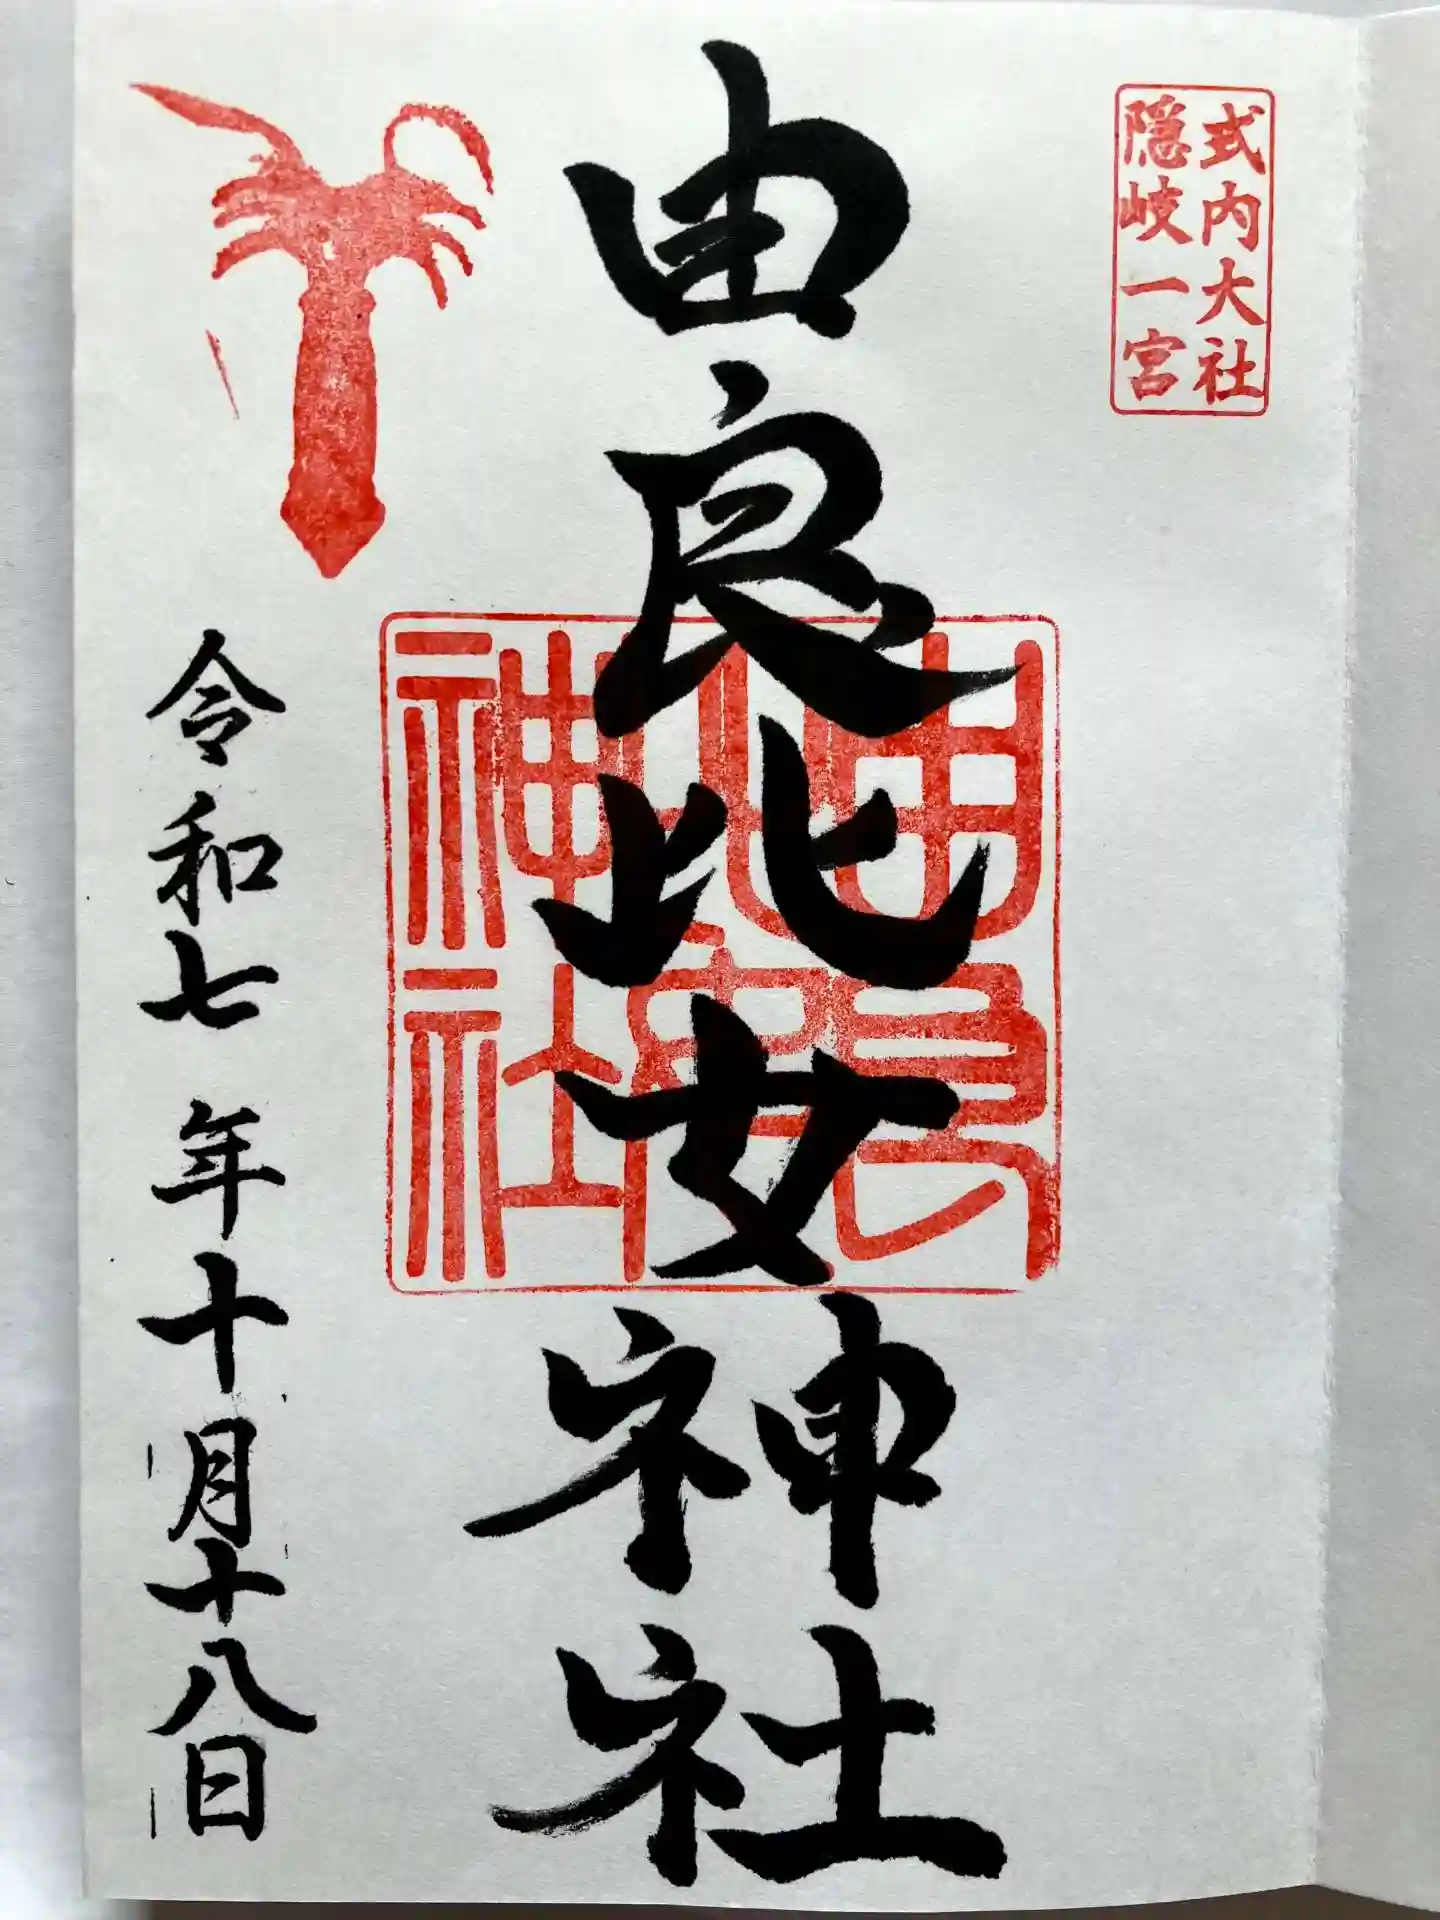 式内大社
隠岐一宮
由良比女神社
由良
比女
神社
令和七年十月十八日